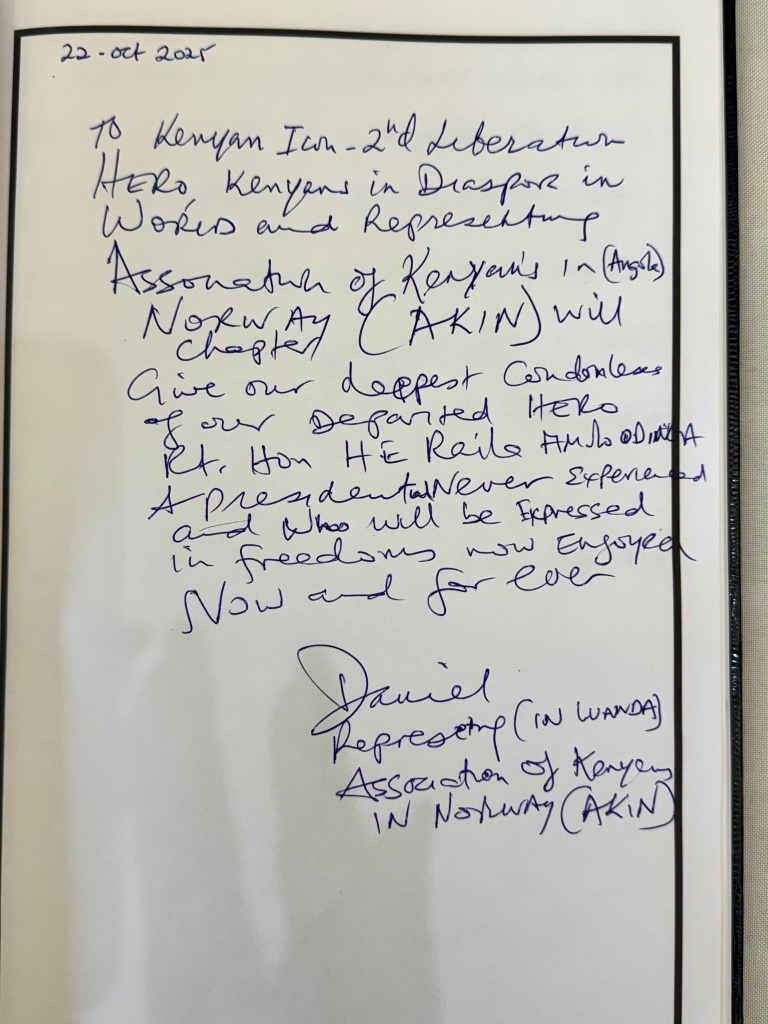 22-oct 2025
To Kenyan Icon - 2nd Liberation
HERO, Kenyans in Diaspora in
WORLD and Representing
Association of Kenyan's in (Angola)
NORWAY (AKIN) will
chapter
Give our deepest Condolences
of our Departed HERO
Rt. Hon HE Raila AMOLO ODINGA
A President Never Experienced
and Who will be Expressed
in freedoms now Enjoyed
Now and for ever
Daniel
Representing (IN LUANDA)
Association of Kenyans
IN Norway (AKIN)